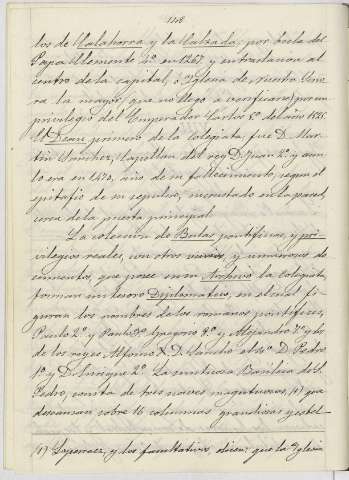 los de Calahorra y la Calzada; por bula del
Papa Clemente 4º en 1267, y entraslacion al
centro de la capital, é Yglesia de nuestra Seño
ra la mayor, que no llegó a verificarse, por un
privilegio del Emperador Carlos 5º del año 1525.
El Dean primero de la Colegiata, fue D. Mar
tin Sanchez, Capellan del rey D. Juan 2º y aun
lo era en 1473, año de su fallecimiento, segun el
epitafio de su sepulcro, incrustado en la pared,
cerca de la puerta principal.
La coleccion de Bulas pontificias, y pri
vilegios reales, con otros varios, y numerosos do
cumentos, que posee en su Archivo la colegiata,
forman un tesoro Diplomatico, en el cual fi
guran los nombres de los romanos pontifices,
Paulo 2º y Gregorio y Alejandro y los
de los reyes Alfonso X. D. Sancho el D. Pedro
1º y D. Enrique 2º. La suntuosa Basilica de S.
Pedro, consta de tres naves magestuosas, (1) que
descansan sobre 16 columnas grandiosas y esbel
(1) y los facultativos, dicen: que la Yglesia